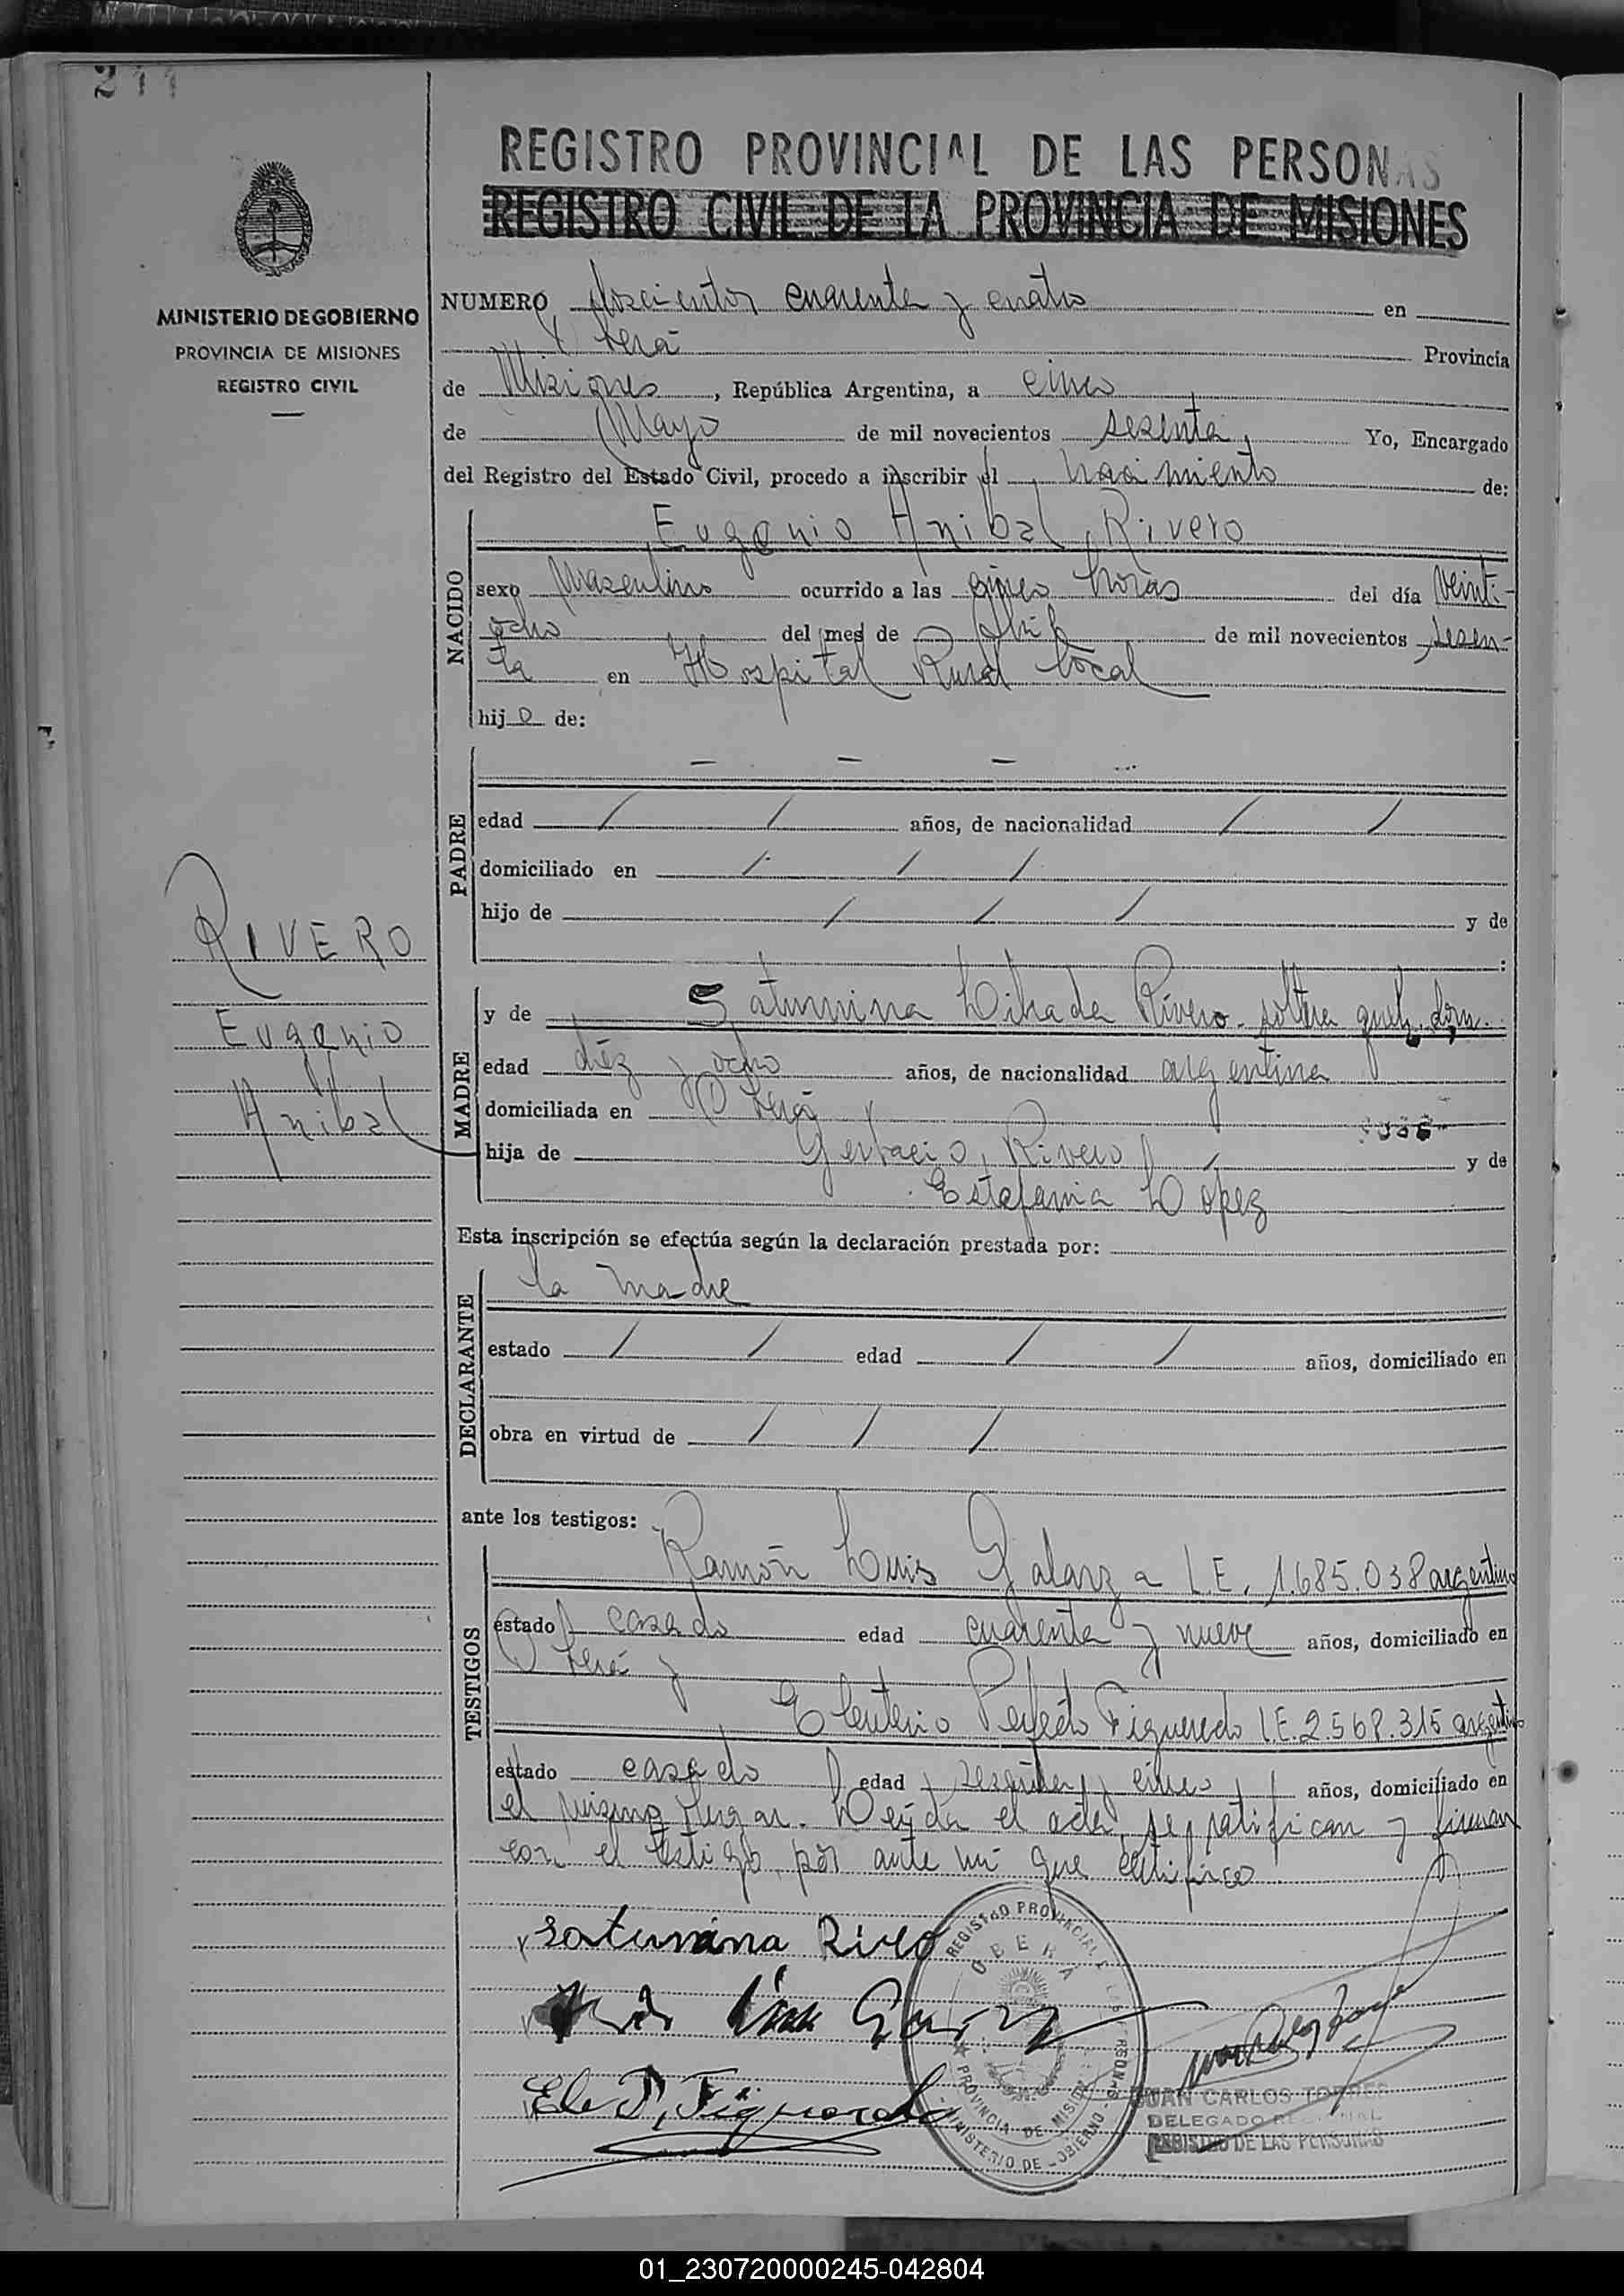 244
REGISTRO PROVINCIAL DE LAS PERSONAS
REGISTRO CIVIL DE LA PROVINCIA DE MISIONES
MINISTERIO DE GOBIERNO
PROVINCIA DE MISIONES
REGISTRO CIVIL
NUMERO doscientos cuarenta y cuatro en
Oberá Provincia
de Misiones, República Argentina, a cinco
de Mayo de mil novecientos sesenta, Yo, Encargado
del Registro del Estado Civil, procedo a inscribir el nacimiento de:
NACIDO
Eugenio Anibal Rivero
sexo Masculino ocurrido a las cinco horas del día veinti-
ocho del mes de Abril de mil novecientos sesen-
ta en Hospital Rural local
hijo de:
PADRE
— — —
edad / / años, de nacionalidad / /
domiciliado en / / /
hijo de / / / y de
:
RIVERO
Eugenio
Anibal
MADRE
y de Saturnina Librada Rivero. soltera queh. dom.
edad diez y ocho años, de nacionalidad argentina
domiciliada en Oberá
hija de Gervacio Rivero y de
Estefania López
Esta inscripción se efectúa según la declaración prestada por:
DECLARANTE
la madre
estado / / edad / / años, domiciliado en
obra en virtud de / / /
ante los testigos:
TESTIGOS
Ramón Luis Galarza L.E. 1.685.038 argentino
estado casado edad cuarenta y nueve años, domiciliado en
Oberá y
Eleuterio Perfecto Figueredo L.E. 2.568.315 argentino
estado casado edad sesenta y cinco años, domiciliado en
el mismo lugar. Leída el acta, se ratifican y firman
con el testigo, por ante mí que certifico
Saturnina Rivero
Luis
Ele P. Figueredo
REGISTRO PROVINCIAL DE LAS PERSONAS
OBERÁ
PROVINCIA DE MISIONES
MINISTERIO DE GOBIERNO
JUAN CARLOS TORRES
DELEGADO REGIONAL
REGISTRO DE LAS PERSONAS
01_230720000245-042804